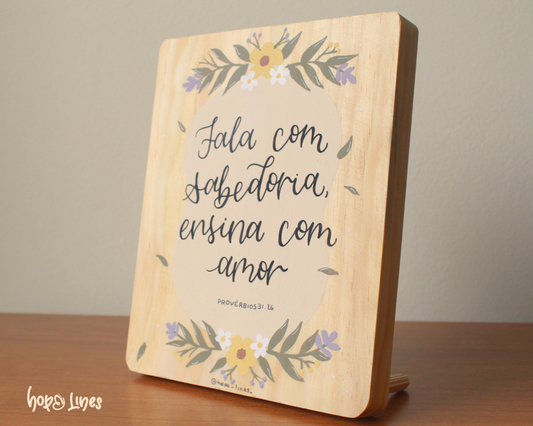 Fala com
sabedoria,
ensina com
amor
PROVÉRBIOS 31.26
@hope_lines_
hope Lines